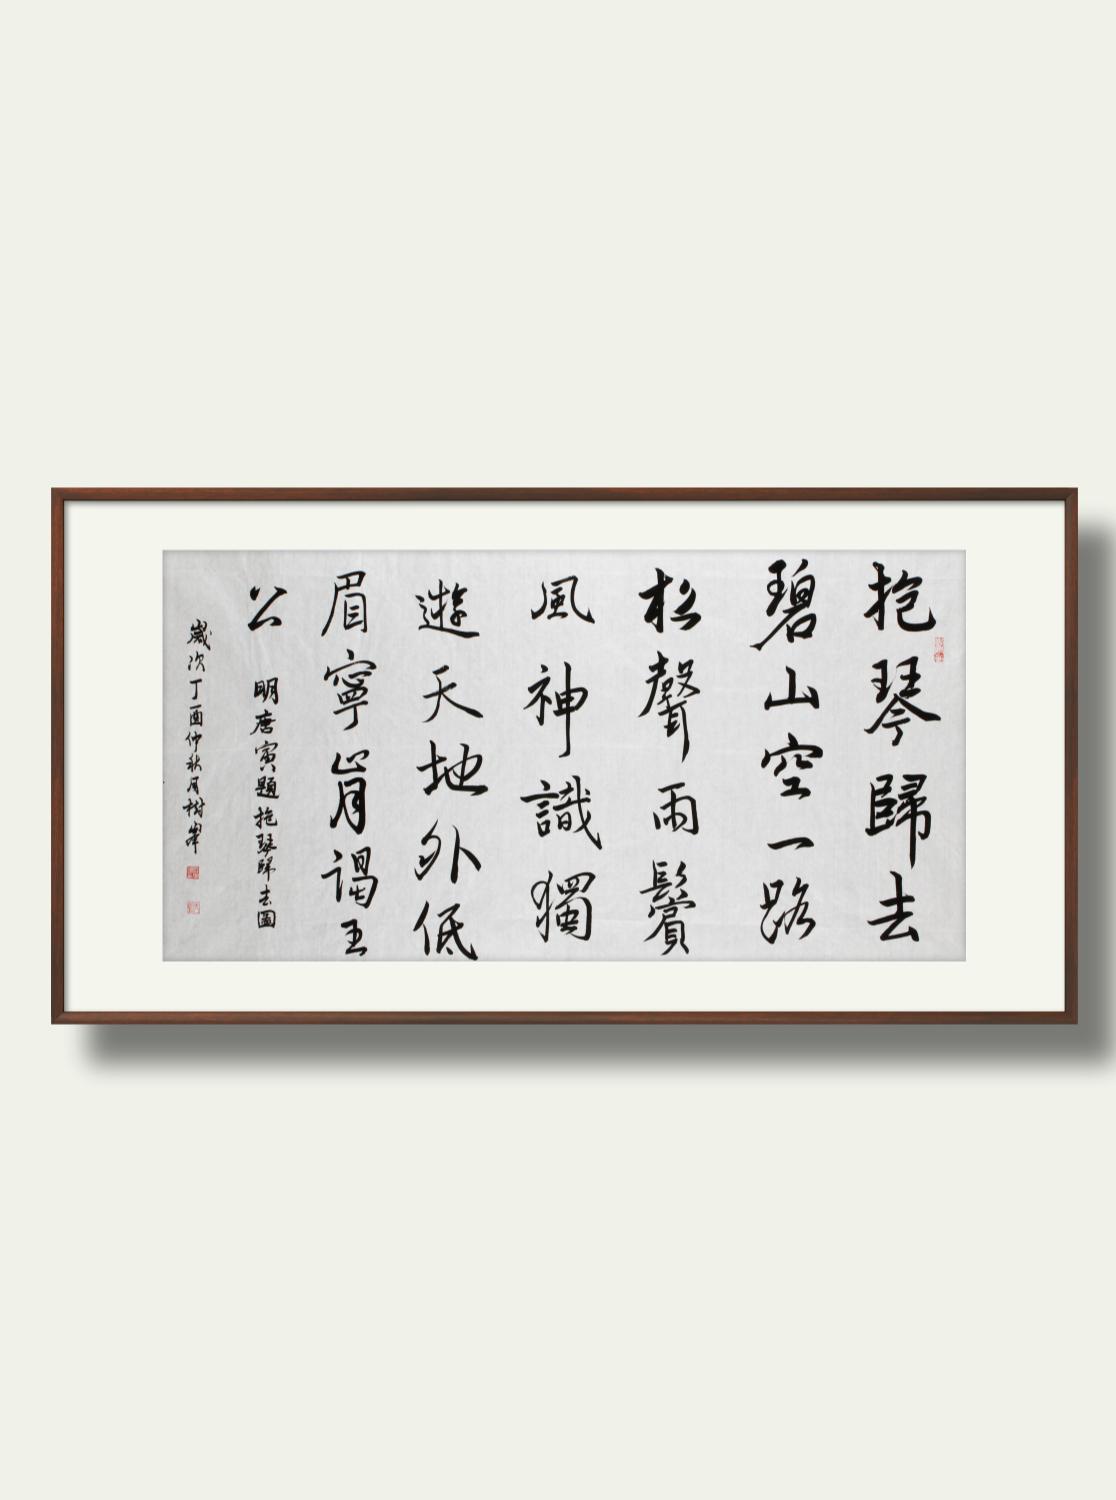 抱琴歸去
碧山空一路
松聲雨鬢
風神識獨
遊天地外低
眉寧肯謁王
公 明唐寅題抱琴歸去圖
歲次丁酉仲秋月樹峯